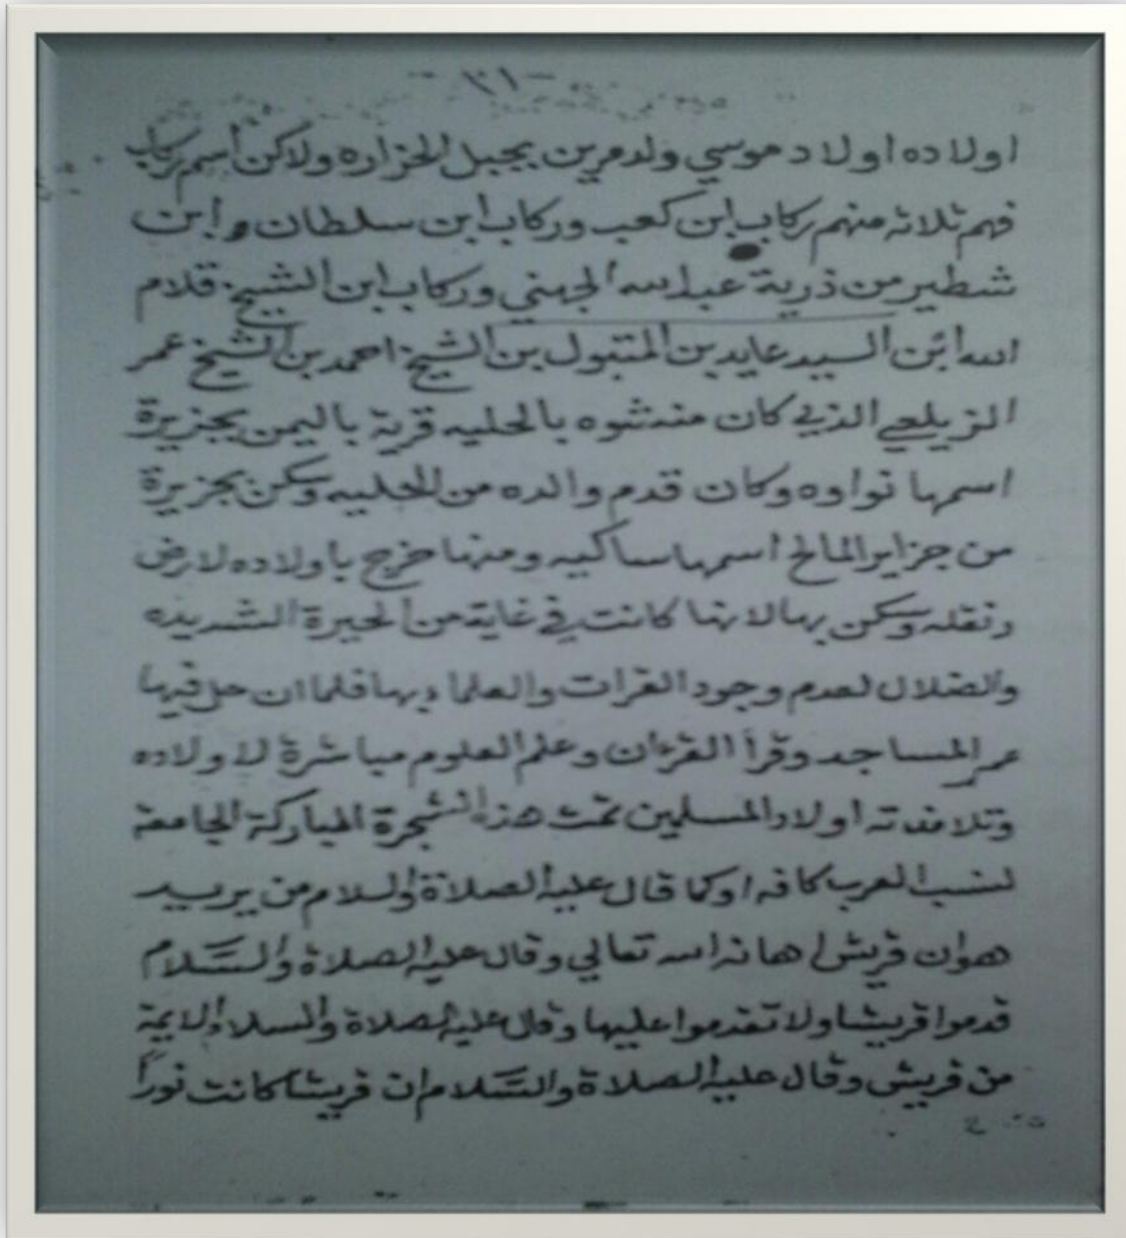 -٣١-
اولاده اولاد موسي ولد مرين بجبل الحزاره ولاكن اسم ركاب
فهم ثلاثه منهم ركاب ابن كعب وركاب ابن سلطان و ابن
شطير من ذرية عبدالله الجهني وركاب ابن الشيخ غلام
الله ائبن السيد عايد بن المقبول بن الشيخ احمد بن الشيخ عمر
الزيلعي الذي كان منشوه بالحليه قرية باليمن بجزيرة
اسمها نواوه وكان قدم والده من الحليه وسكن بجزيرة
من جزاير المالح اسمها ساكيه ومنها خرج باولاده لارض
دنقله وسكن بها لانها كانت في غاية من الحيرة الشديده
والضلال لعدم وجود القرات والعلماء بها فلما ان حل فيها
عمر المساجد وقرأ القرءان وعلم العلوم مباشرة لاولاده
وتلامذته اولاد المسلمين تمت هذه الشجرة المباركة الجامعة
لنسب العرب كافه او كما قال عليه الصلاة والسلام من يريد
هوان قريش اهانه الله تعالي وقال عليه الصلاة والسَّلام
قدموا قريشا ولا تقدموا عليها وقال عليه الصلاة والسلام الايمة
من قريش وقال عليه الصلاة والسَّلام ان قريشا كانت نوراً